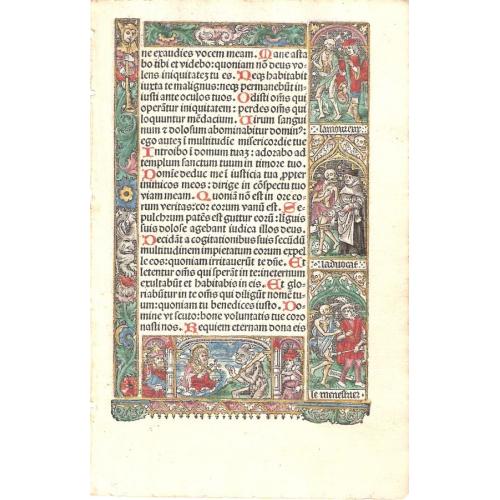 ne exaudies vocem meam. Mane asta
bo tibi et videbo: quoniam nõ deus vo-
lens iniquitatez tu es. Neqz habitabit
iuxta te malignus: neqz permanebũt in-
iusti ante oculos tuos. Odisti oẽs qui
operãtur iniquitatem: perdes oẽs qui
loquuntur mẽdacium. Virum sangui
num & dolosum abominabitur domin9:
ego autez ĩ multitudĩe misericordie tue
Introibo ĩ domum tuaz: adorabo ad
templum sanctum tuum in timore tuo.
Domĩe deduc me ĩ iusticia tua ꝓpter
inimicos meos: dirige in cõspectu tuo
viam meam. Quoniã nõ est in ore eo-
rum veritas: cor eorum vanũ est. Se-
pulchrum patẽs est guttur eorũ: lĩguis
suis dolose agebant iudica illos deus.
Decidãt a cogitationibus suis secũdũ
multitudinem impietatum eorum expel
le eos: quoniam irritauerũt te dñe. Et
letentur oẽs qui sperãt in te: ineternum
exultabũt et habitabis in eis. Et glo-
riabũtur in te oẽs qui diligũt nomẽ tu-
um: quoniam tu benedices iusto. Do-
mine vt scuto: bone voluntatis tue coro
nasti nos. Requiem eternam dona eis
lamoureux
laduocat
le menestrier